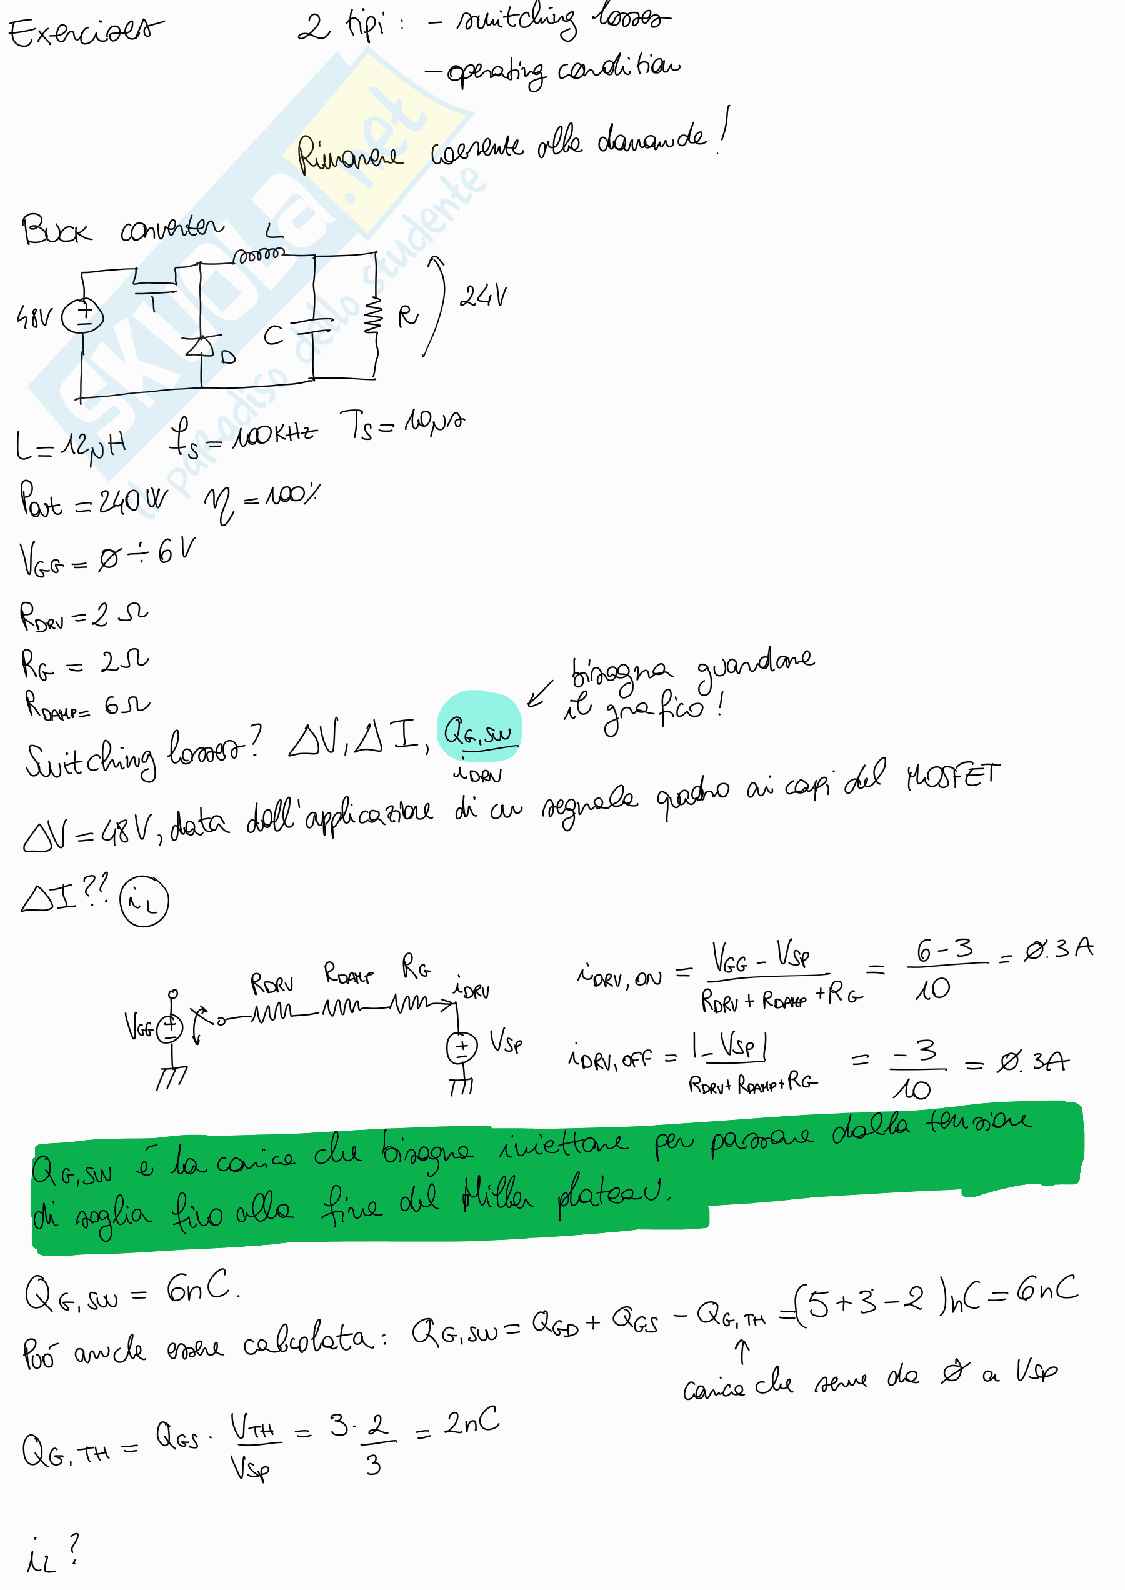 Exercises 2 tipi: - switching losses
- operating condition
Rimanere coerente alle domande!
Buck converter
L
48V
D
C
R
24V
L = 12μH fs = 100KHz Ts = 10μs
Pout = 240W η = 100%
VGG = Ø ÷ 6V
RDRV = 2Ω
RG = 2Ω
RDAMP = 6Ω
bisogna guardare
il grafico!
Switching losses? ΔV, ΔI, QG,SW
iDRV
ΔV = 48V, data dall'applicazione di un segnale quadro ai capi del MOSFET
ΔI?? iL
VGG
RDRV RDAMP RG iDRV
VSP
iDRV,ON = VGG - VSP / RDRV + RDAMP + RG = 6-3 / 10 = Ø.3A
iDRV,OFF = |-VSP| / RDRV + RDAMP + RG = -3 / 10 = Ø.3A
QG,SW è la carica che bisogna iniettare per passare dalla tensione
di soglia fino alla fine del Miller plateau.
QG,SW = 6nC.
Può anche essere calcolata: QG,SW = QGD + QGS - QG,TH = (5+3-2)nC = 6nC
carica che serve da Ø a VSP
QG,TH = QGS · VTH / VSP = 3·2 / 3 = 2nC
iL?
SKUOLA.net
il paradiso dello studente